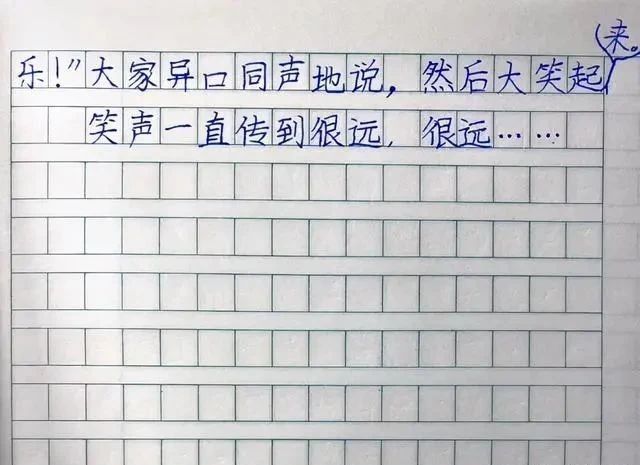 乐！”大家异口同声地说，然后大笑起来。
笑声一直传到很远，很远……